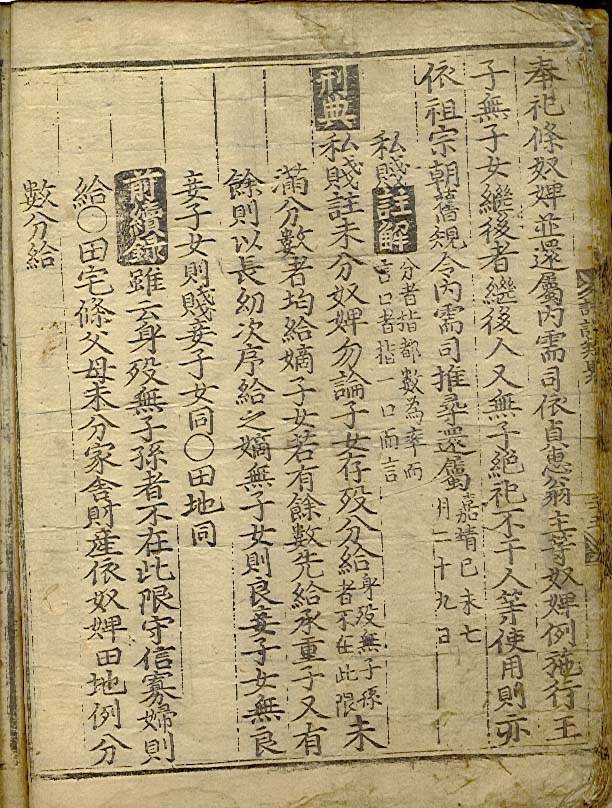 奉祀條奴婢並還屬內需司依貞惠翁主等奴婢例施行王
子無子女繼後者繼後人又無子絶祀不干人等使用則亦
依祖宗朝舊規令內需司推尋還屬嘉靖己未七月二十九日
私賤註解分者指都數爲率而言口者指一口而言
刑典私賤註未分奴婢勿論子女存歿分給身歿無子孫者不在此限未
滿分數者均給嫡子女若有餘數先給承重子又有
餘則以長幼次序給之嫡無子女則良妾子女無良
妾子女則賤妾子女同〇田地同
前續録雖云身歿無子孫者不在此限守信寡婦則
給〇田宅條父母未分家舍則産依奴婢田地例分
數分給